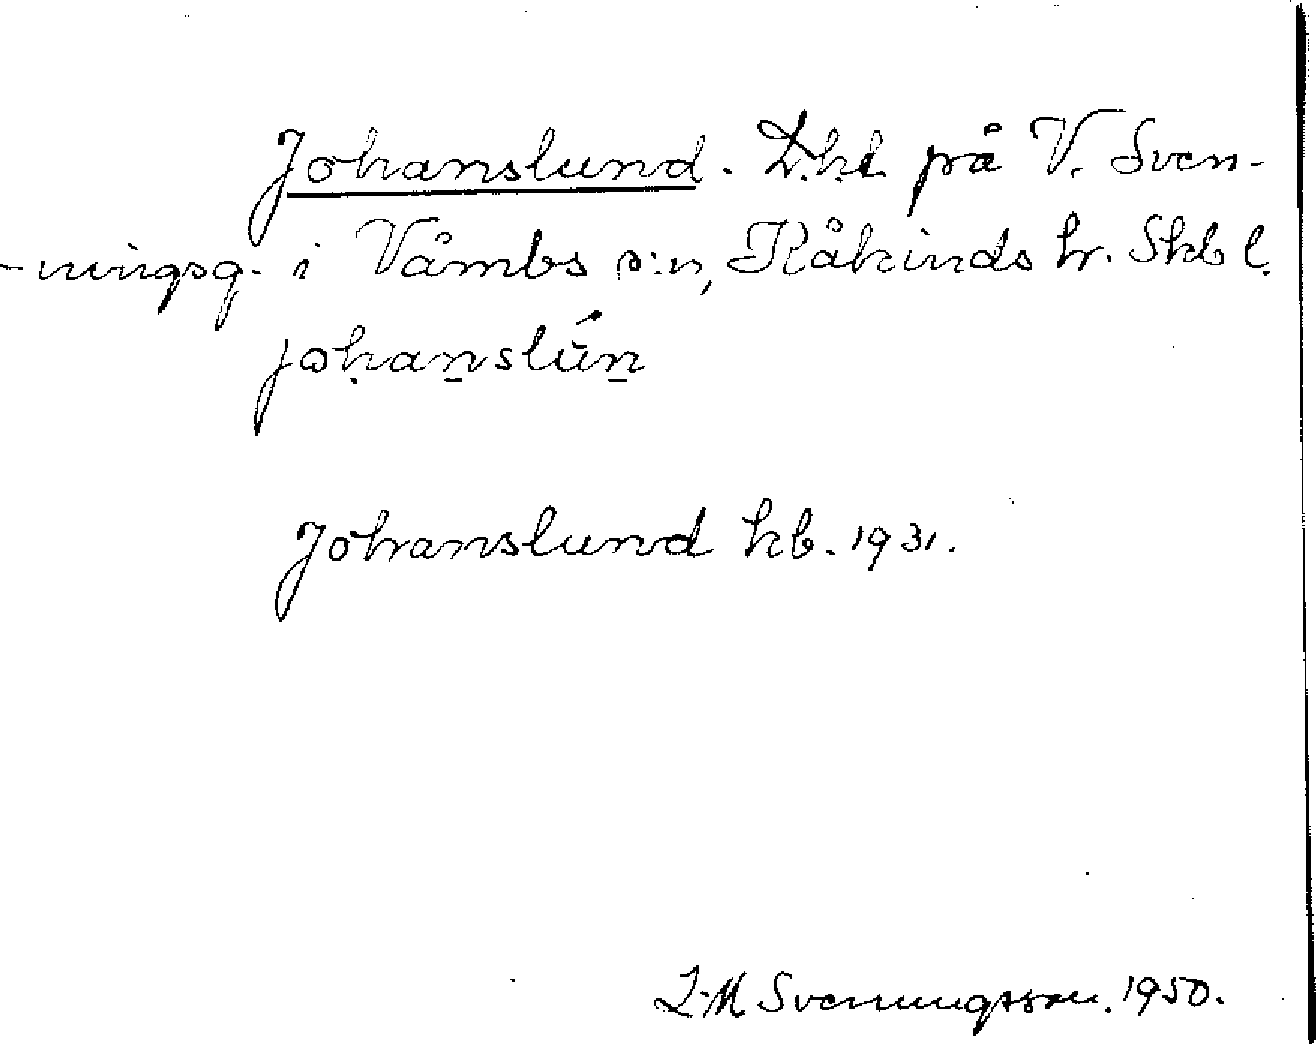 Johanslund. L.ht på V. Sven-
-ningsg. i Våmbs s:n, Kåkinds hr. Skb l.
johanslún
Johanslund kb. 1931.
L-M Svenungsson. 1950.